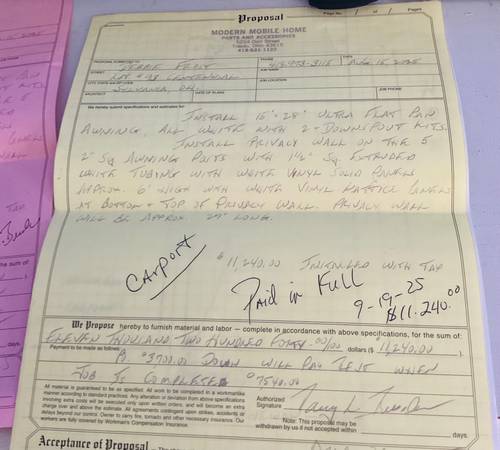 Proposal
Page No. 1 of 1 Pages
MODERN MOBILE HOME
PARTS AND ACCESSORIES
Toledo, Ohio 43615
PROPOSAL SUBMITTED TO
PHONE
DATE
Aug 15 2025
STREET
LOT # 98 CENTENNIAL
JOB NAME
CITY, STATE AND ZIP CODE
SYLVANIA, OH.
JOB LOCATION
ARCHITECT
DATE OF PLANS
JOB PHONE
We hereby submit specifications and estimates for:
INSTALL 15' x 28' ULTRA FLAT PAN
AWNING, ALL WHITE WITH 2 - DOWNSPOUT KITS.
INSTALL PRIVACY WALL ON THE 5
2" SQ AWNING POSTS WITH 1 1/2" SQ. EXTRUDED
WHITE TUBING WITH WHITE VINYL SOLID PANELS
APPROX. 6' HIGH WITH WHITE VINYL LATTICE PANELS
AT BOTTOM & TOP OF PRIVACY WALL. PRIVACY WALL
WILL BE APPROX. 24' LONG.
CARPORT
$11,240.00 INSTALLED WITH TAX
Paid in Full
9-19-25
$11,240.00
We Propose hereby to furnish material and labor — complete in accordance with above specifications, for the sum of:
ELEVEN THOUSAND TWO HUNDRED FORTY 00/00 dollars ($ 11,240.00 ).
Payment to be made as follows
$3700.00 DOWN WILL PAY REST WHEN
JOB IS COMPLETE $7540.00
All material is guaranteed to be as specified. All work to be completed in a workmanlike
manner according to standard practices. Any alteration or deviation from above specifications
involving extra costs will be executed only upon written orders, and will become an extra
charge over and above the estimate. All agreements contingent upon strikes, accidents or
delays beyond our control. Owner to carry fire, tornado and other necessary insurance. Our
workers are fully covered by Workman's Compensation Insurance.
Authorized
Signature
Note: This proposal may be
withdrawn by us if not accepted within days.
Acceptance of Proposal
TAX
the sum of:
days.